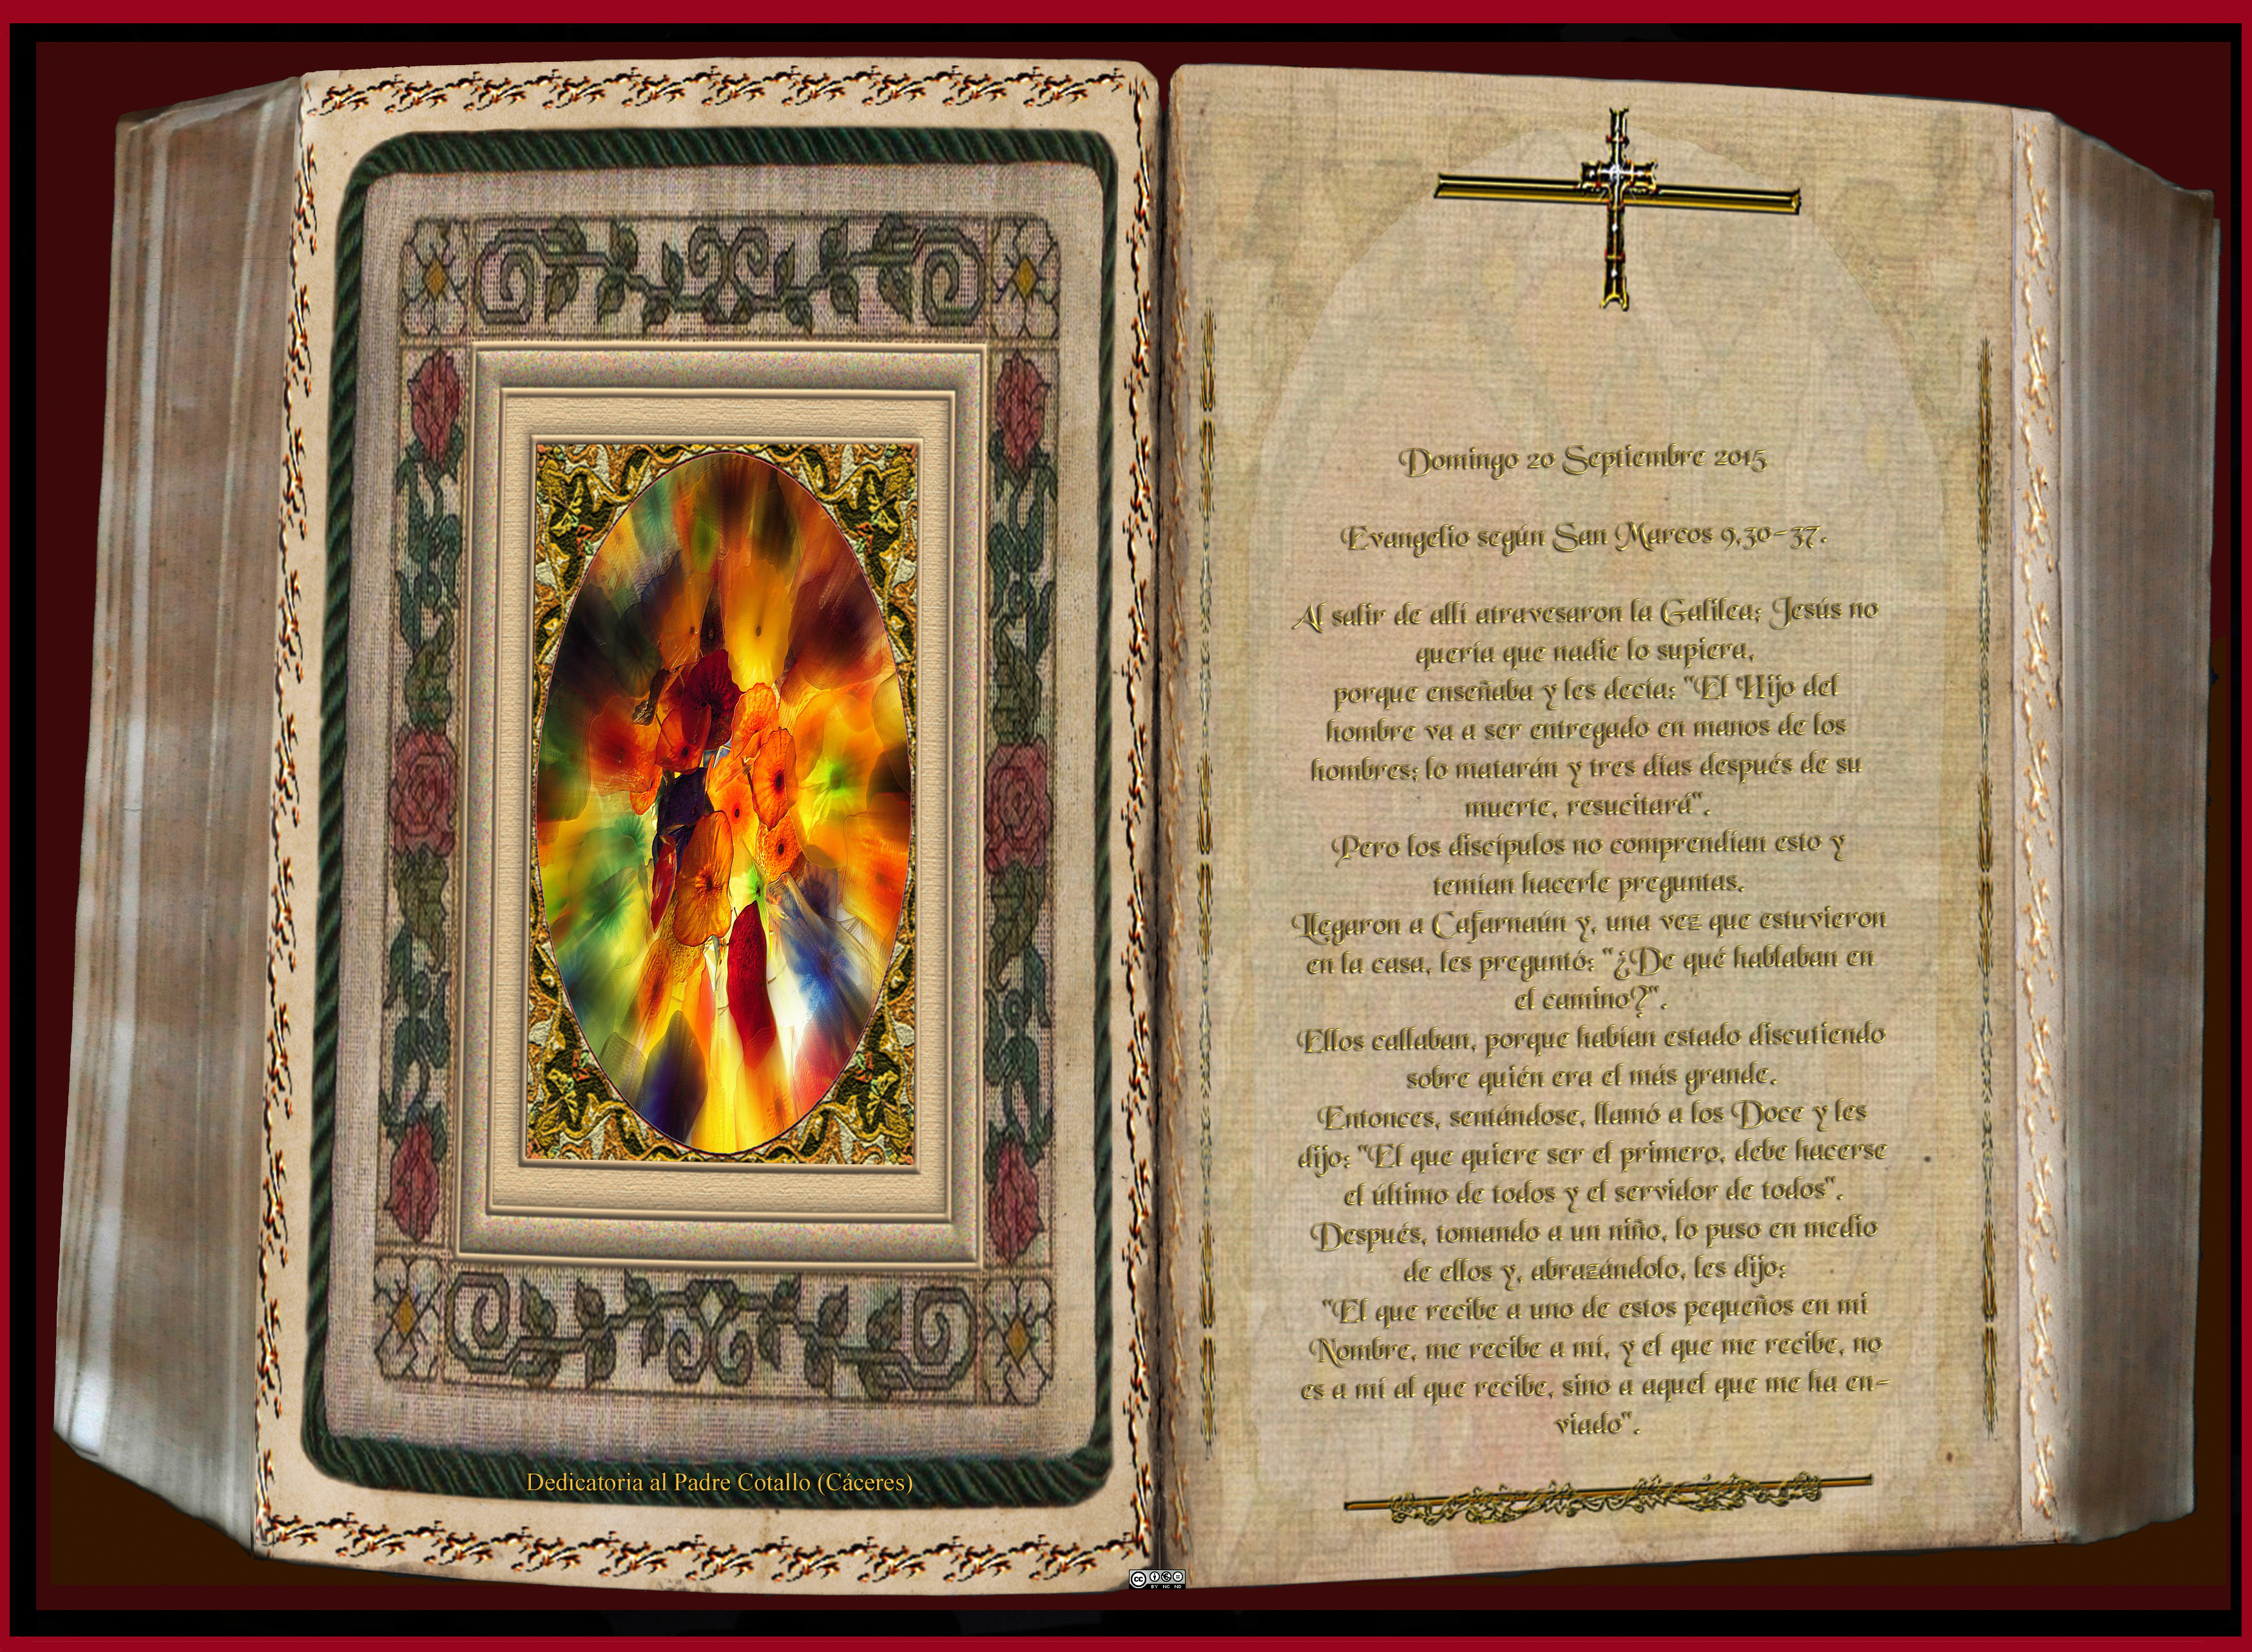 Dedicatoria al Padre Cotallo (Cáceres)
Domingo 20 Septiembre 2015
Evangelio según San Marcos 9,30-37.
Al salir de allí atravesaron la Galilea; Jesús no
quería que nadie lo supiera,
porque enseñaba y les decía: "El Hijo del
hombre va a ser entregado en manos de los
hombres; lo matarán y tres días después de su
muerte, resucitará".
Pero los discípulos no comprendían esto y
temían hacerle preguntas.
Llegaron a Cafarnaún y, una vez que estuvieron
en la casa, les preguntó: "¿De qué hablaban en
el camino?".
Ellos callaban, porque habían estado discutiendo
sobre quién era el más grande.
Entonces, sentándose, llamó a los Doce y les
dijo: "El que quiere ser el primero, debe hacerse
el último de todos y el servidor de todos".
Después, tomando a un niño, lo puso en medio
de ellos y, abrazándolo, les dijo:
"El que recibe a uno de estos pequeños en mi
Nombre, me recibe a mí, y el que me recibe, no
es a mí al que recibe, sino a aquel que me ha en-
viado".
cc BY NC ND